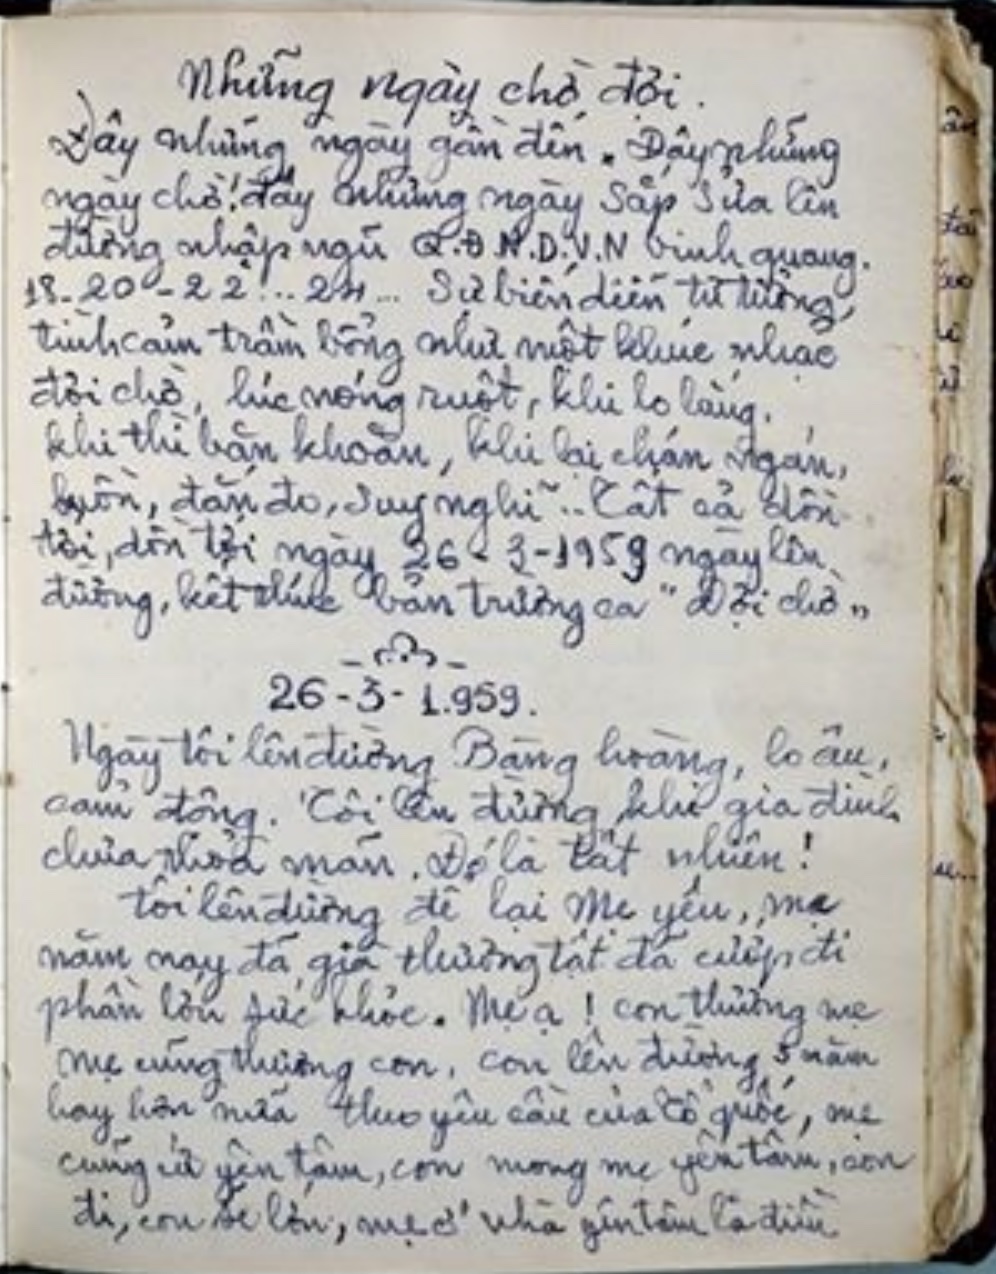 Những ngày chờ đợi.
Đây những ngày gần đến. Đây những
ngày chờ! đây những ngày sắp sửa lên
đường nhập ngũ Q.Đ.N.D.V.N vinh quang.
18-20-22...24... Sự biến diễn tư tưởng,
tình cảm trầm bổng như một khúc nhạc
đợi chờ, lúc nóng ruột, khi lo lắng,
khi thì băn khoăn, khi lại chán ngán,
buồn, đắn đo, suy nghĩ... Tất cả dồn
tới, dồn tới ngày 26-3-1959 ngày lên
đường, kết thúc bản trường ca "Đợi chờ"
26-3-1.959.
Ngày tôi lên đường Bàng hoàng, lo âu,
cảm động. Tôi lên đường khi gia đình
chưa thỏa mãn. Đó là tất nhiên!
Tôi lên đường để lại Mẹ yêu, mẹ
năm nay đã già thương tật đã cướp đi
phần lớn sức khỏe. Mẹ ạ! con thương mẹ
mẹ cũng thương con, con lên đường 3 năm
hay hơn nữa theo yêu cầu của Tổ quốc, mẹ
cũng cứ yên tâm, con mong mẹ yên tâm, con
đi, con sẽ lớn, mẹ ở nhà yên tâm là điều